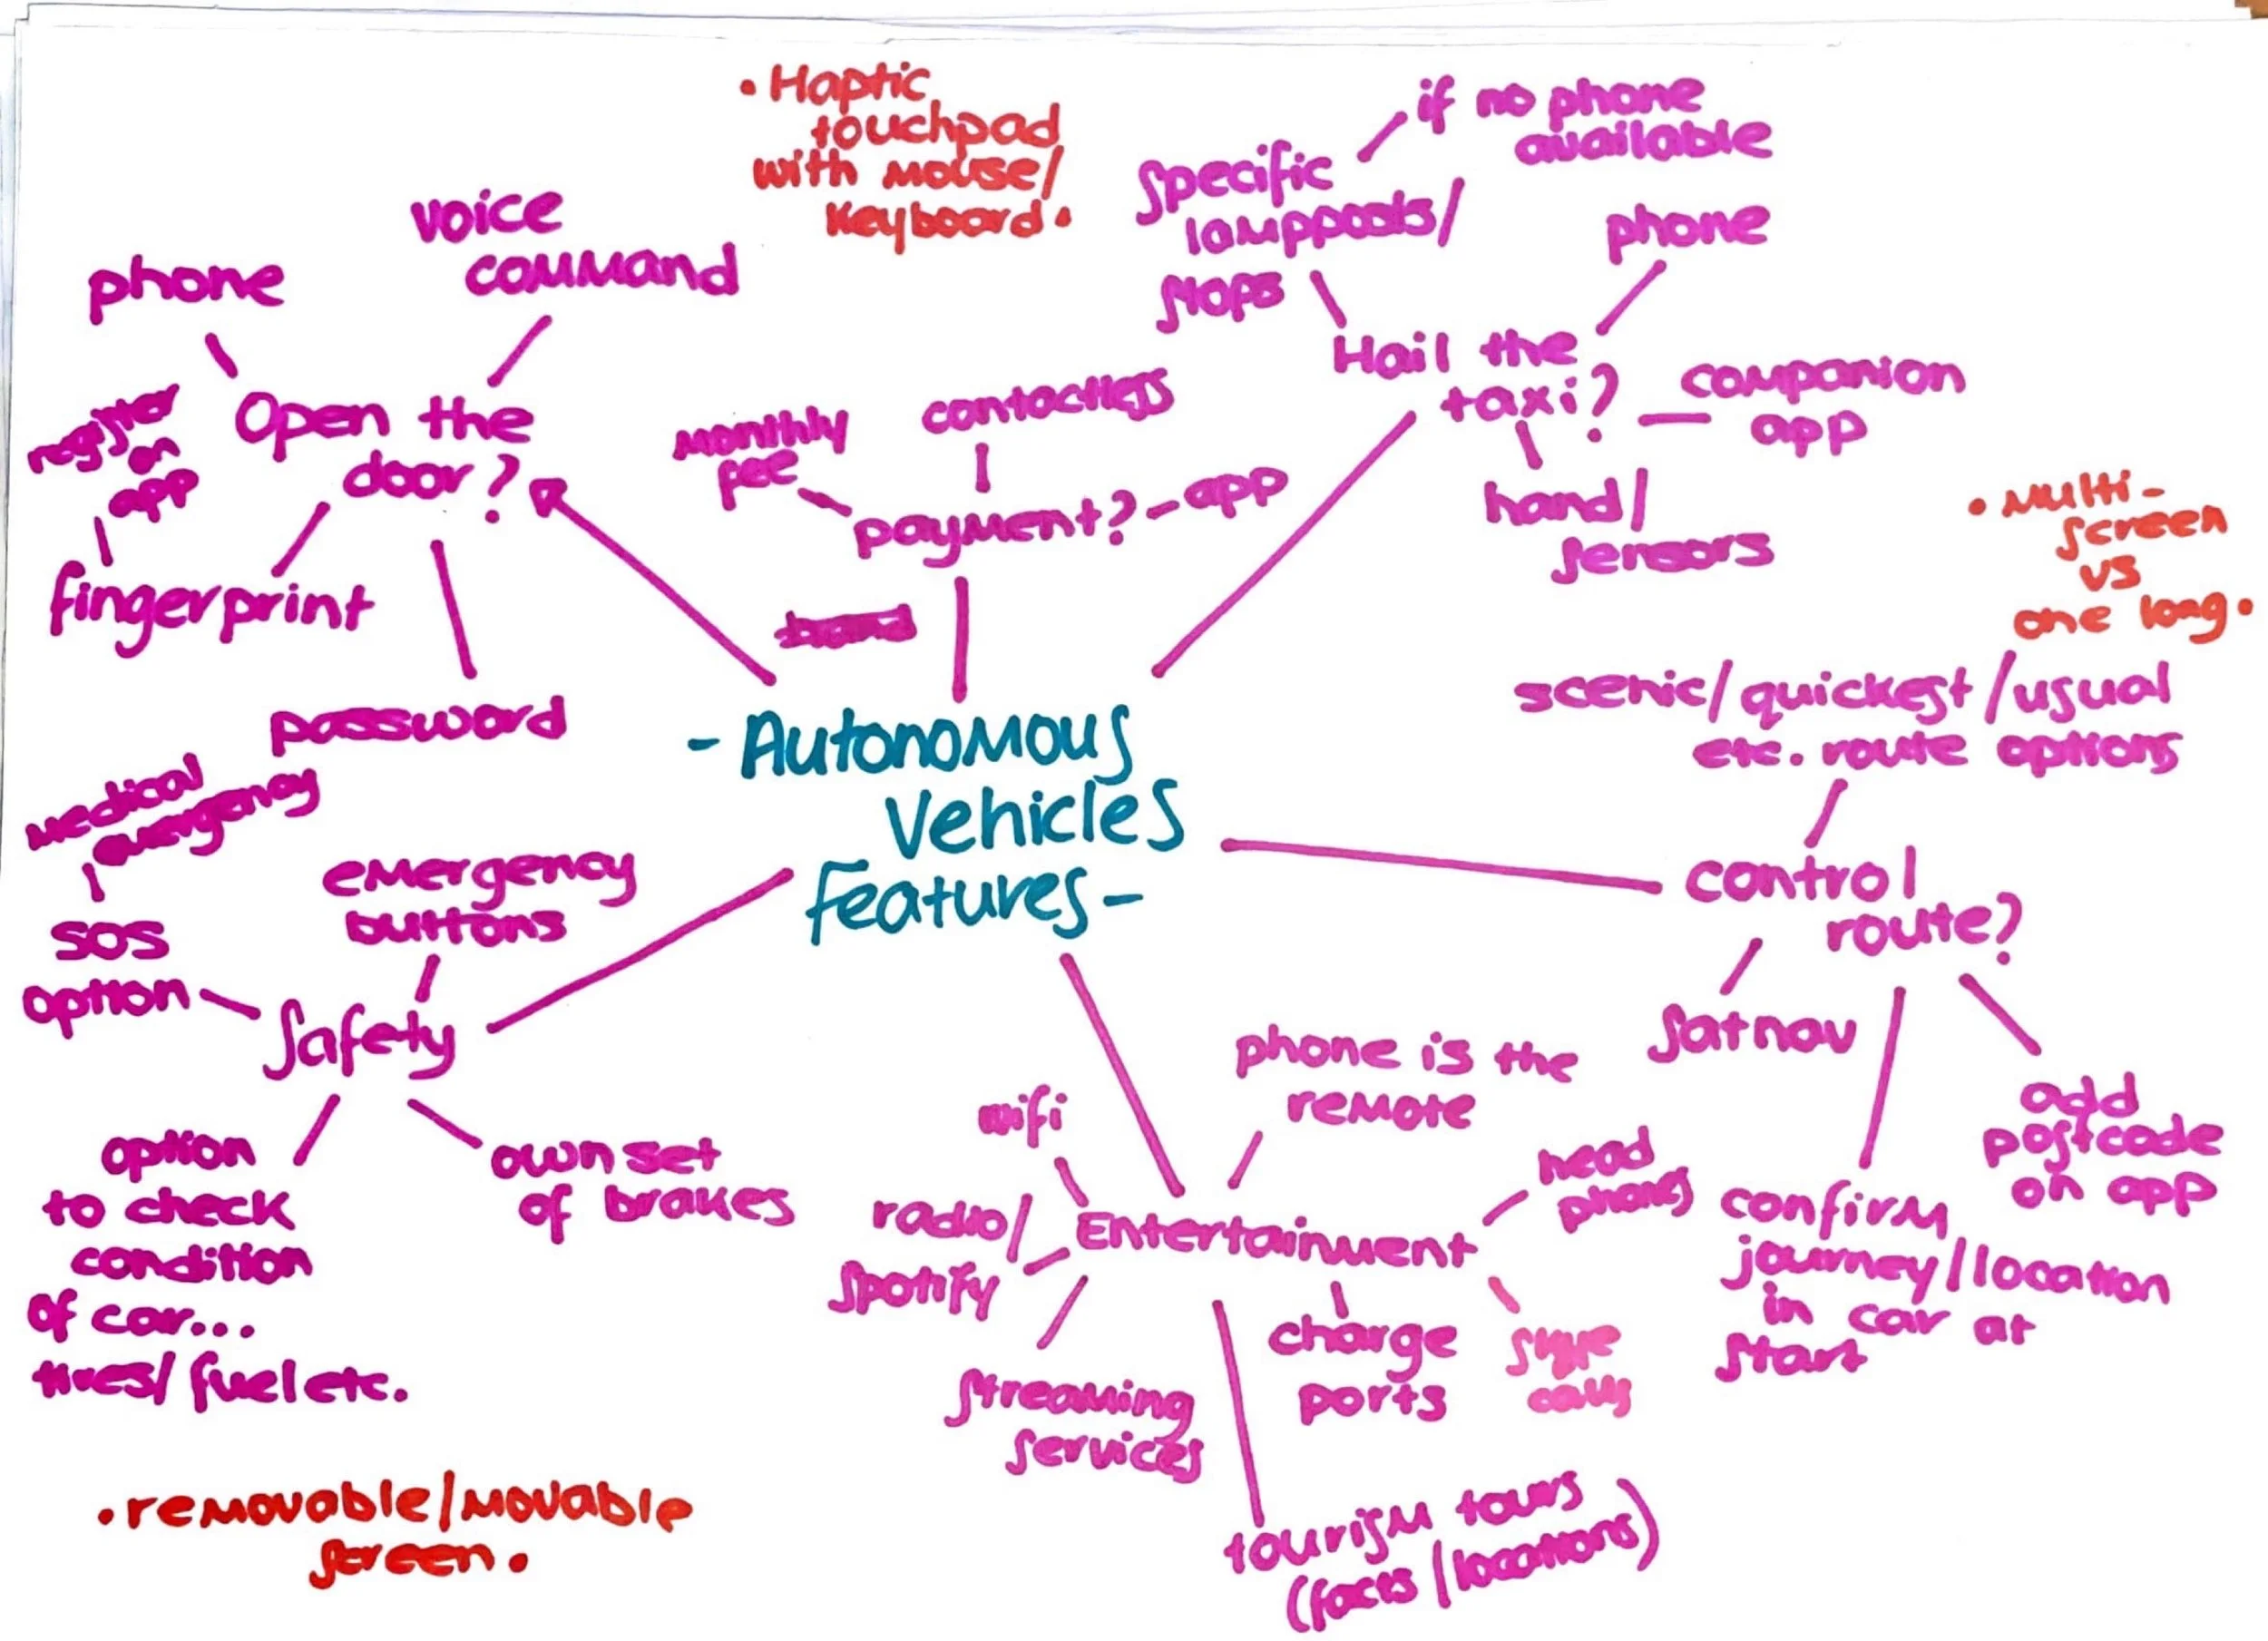 • Haptic
touchpad
with mouse/
keyboard •
if no phone
available
specific
lampposts/
stops
phone
Hail the
taxi?
companion
app
hand/
sensors
voice
command
phone
Open the
door?
register
on
app
fingerprint
password
monthly
fee
contactless
payment? - app
• Multi-
screen
vs
one long •
- Autonomous
Vehicles
Features -
scenic/quickest/usual
etc. route options
control
route?
satnav
add
postcode
on app
confirm
journey/location
in car at
start
medical
emergency
SOS
option
emergency
buttons
Safety
option
to check
condition
of car...
tires/fuel etc.
own set
of brakes
phone is the
remote
wifi
radio/
spotify
Entertainment
head
phones
streaming
services
charge
ports
skype
calls
tourism tours
(facts/locations)
• removable/movable
screen •